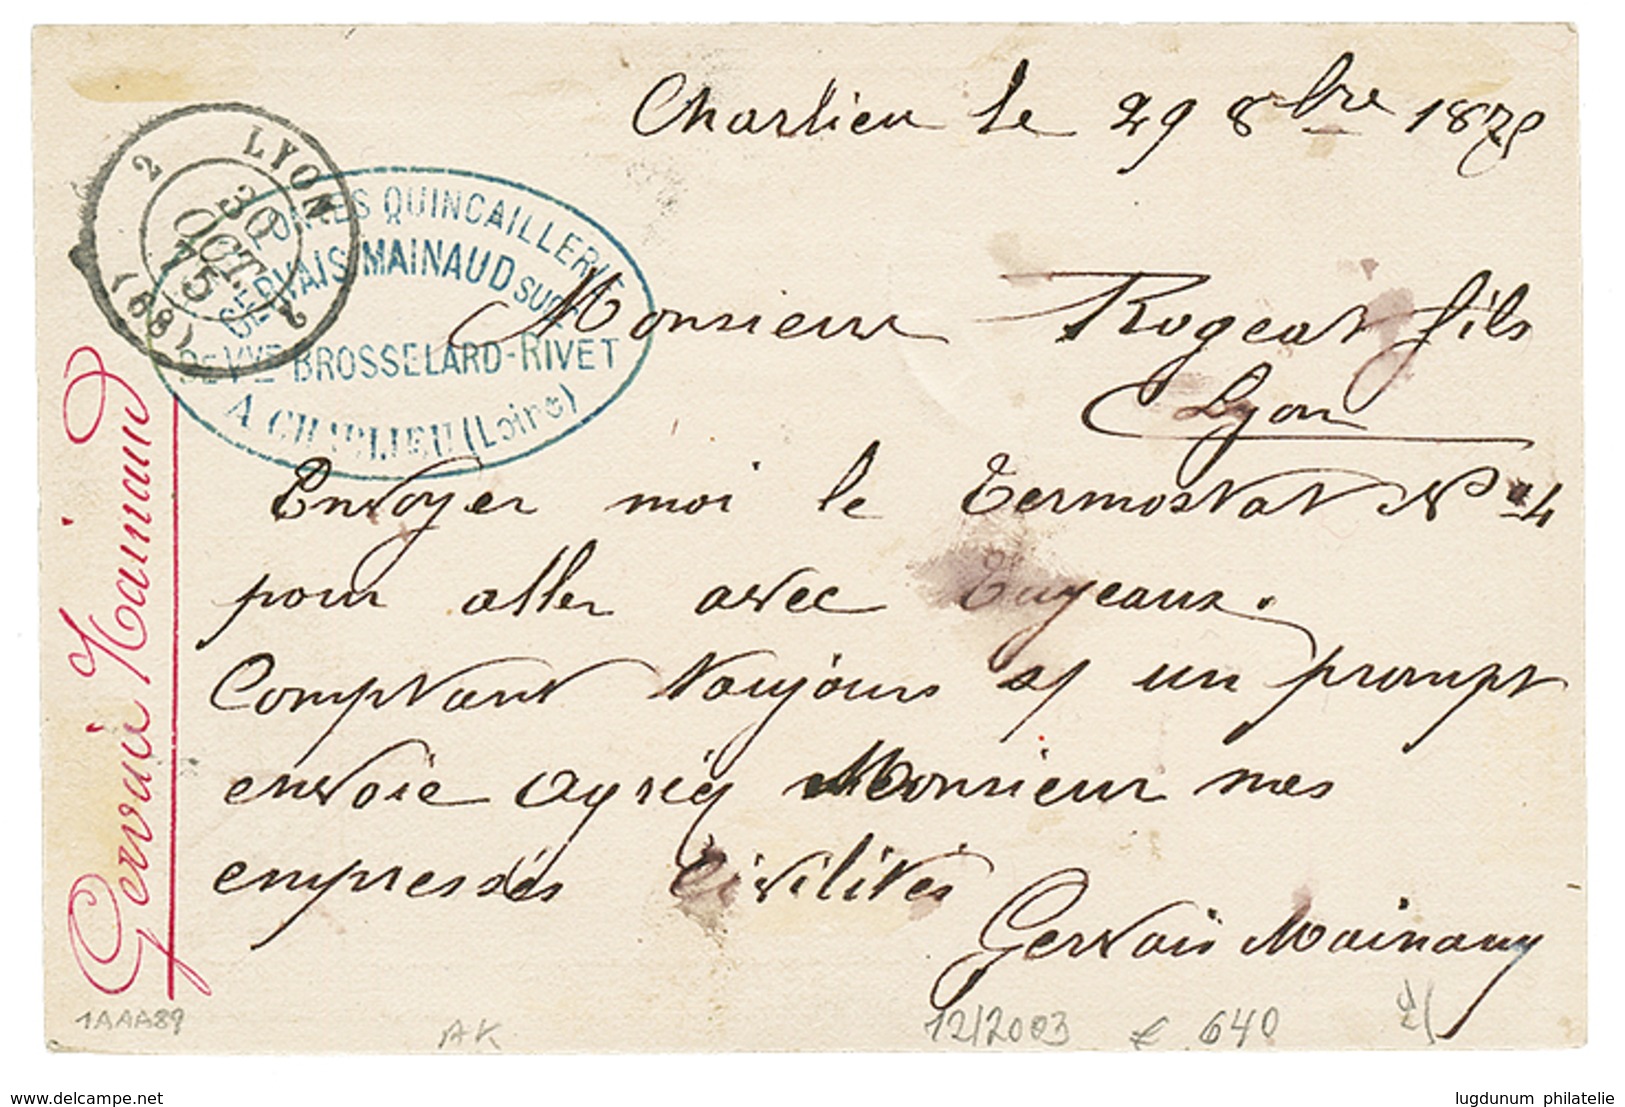 Charlieu le 29 8bre 1875
LYON
2
30
OCT.
75
2
(68)
QUINCAILLERIE
GERVAIS MAINAUD SUCR
DE VVE BROSSELARD-RIVET
A CHARLIEU (Loire)
Monsieur Rogeat fils
Lyon
Envoyer moi le Termostat No 4
pour aller avec Tuyeaux.
Comptant toujours s/ un prompt
envoie agréez Monsieur mes
empressés Civilités
Gervais Mainaud
Gervais Mainaud
1AAA89
AK
12/2003 € 640
lugdunum philatelie